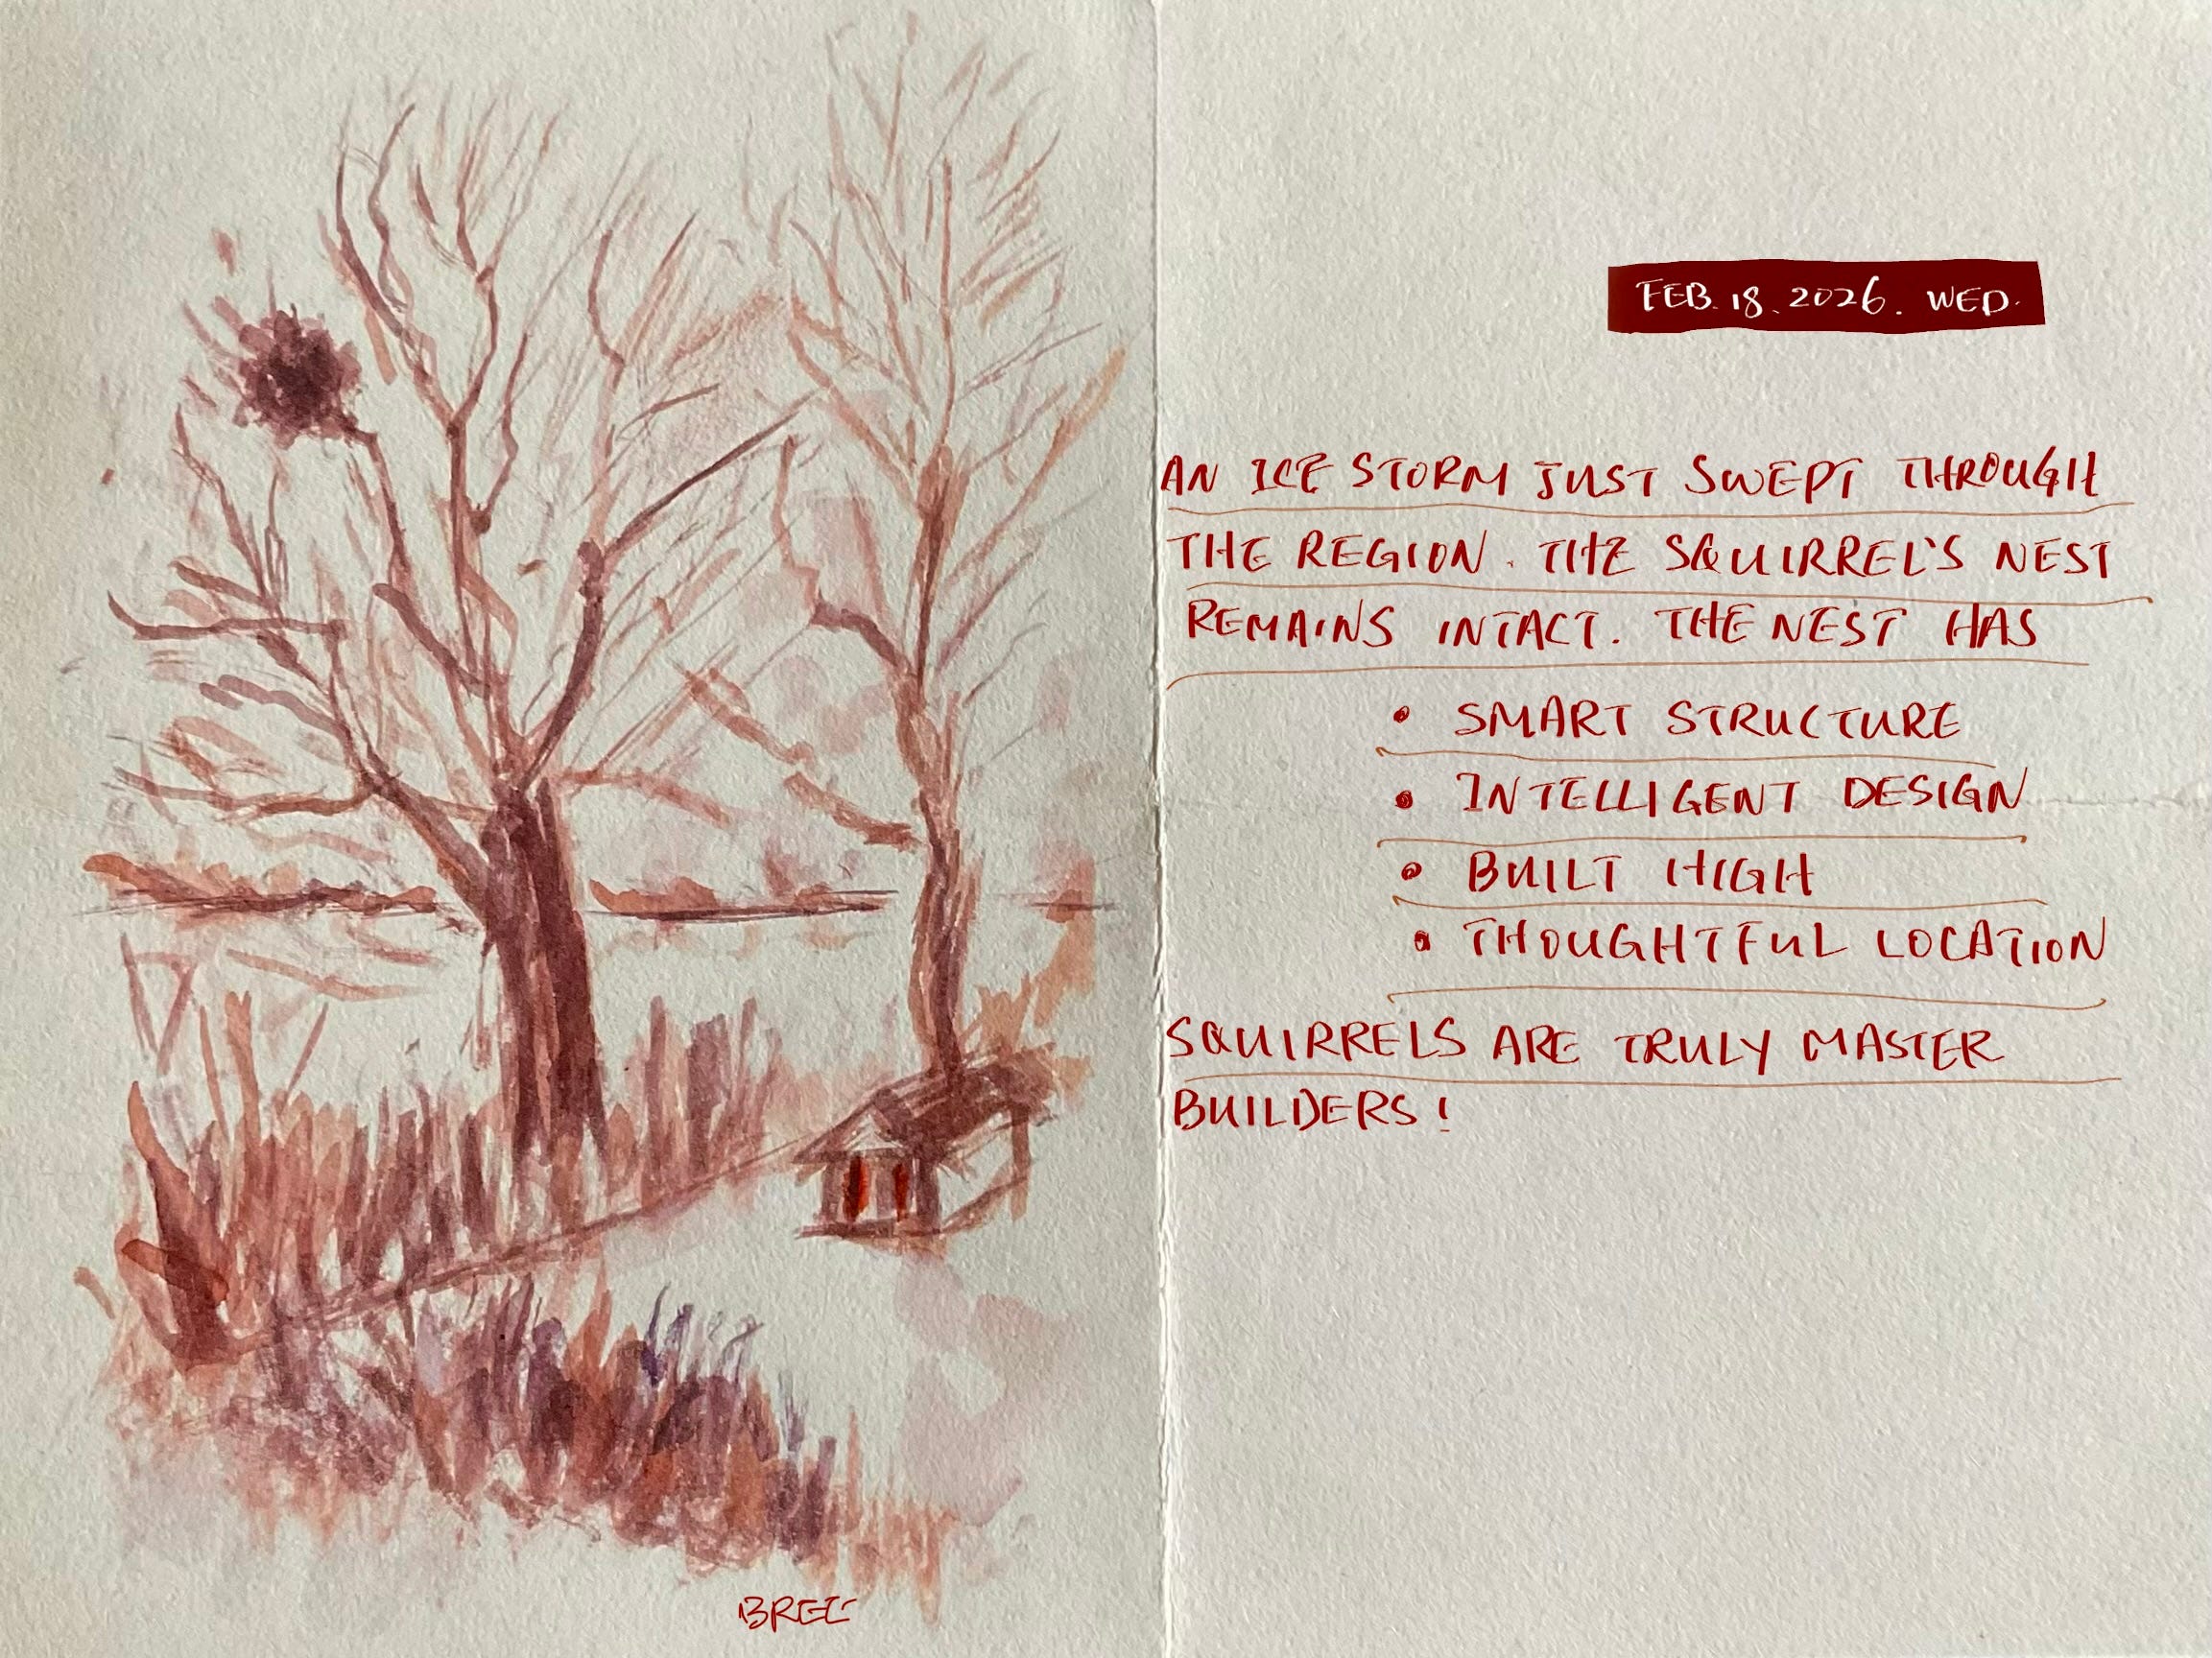 FEB. 18. 2026. WED.
AN ICE STORM JUST SWEPT THROUGH
THE REGION. THE SQUIRREL'S NEST
REMAINS INTACT. THE NEST HAS
• SMART STRUCTURE
• INTELLIGENT DESIGN
• BUILT HIGH
• THOUGHTFUL LOCATION
SQUIRRELS ARE TRULY MASTER
BUILDERS!